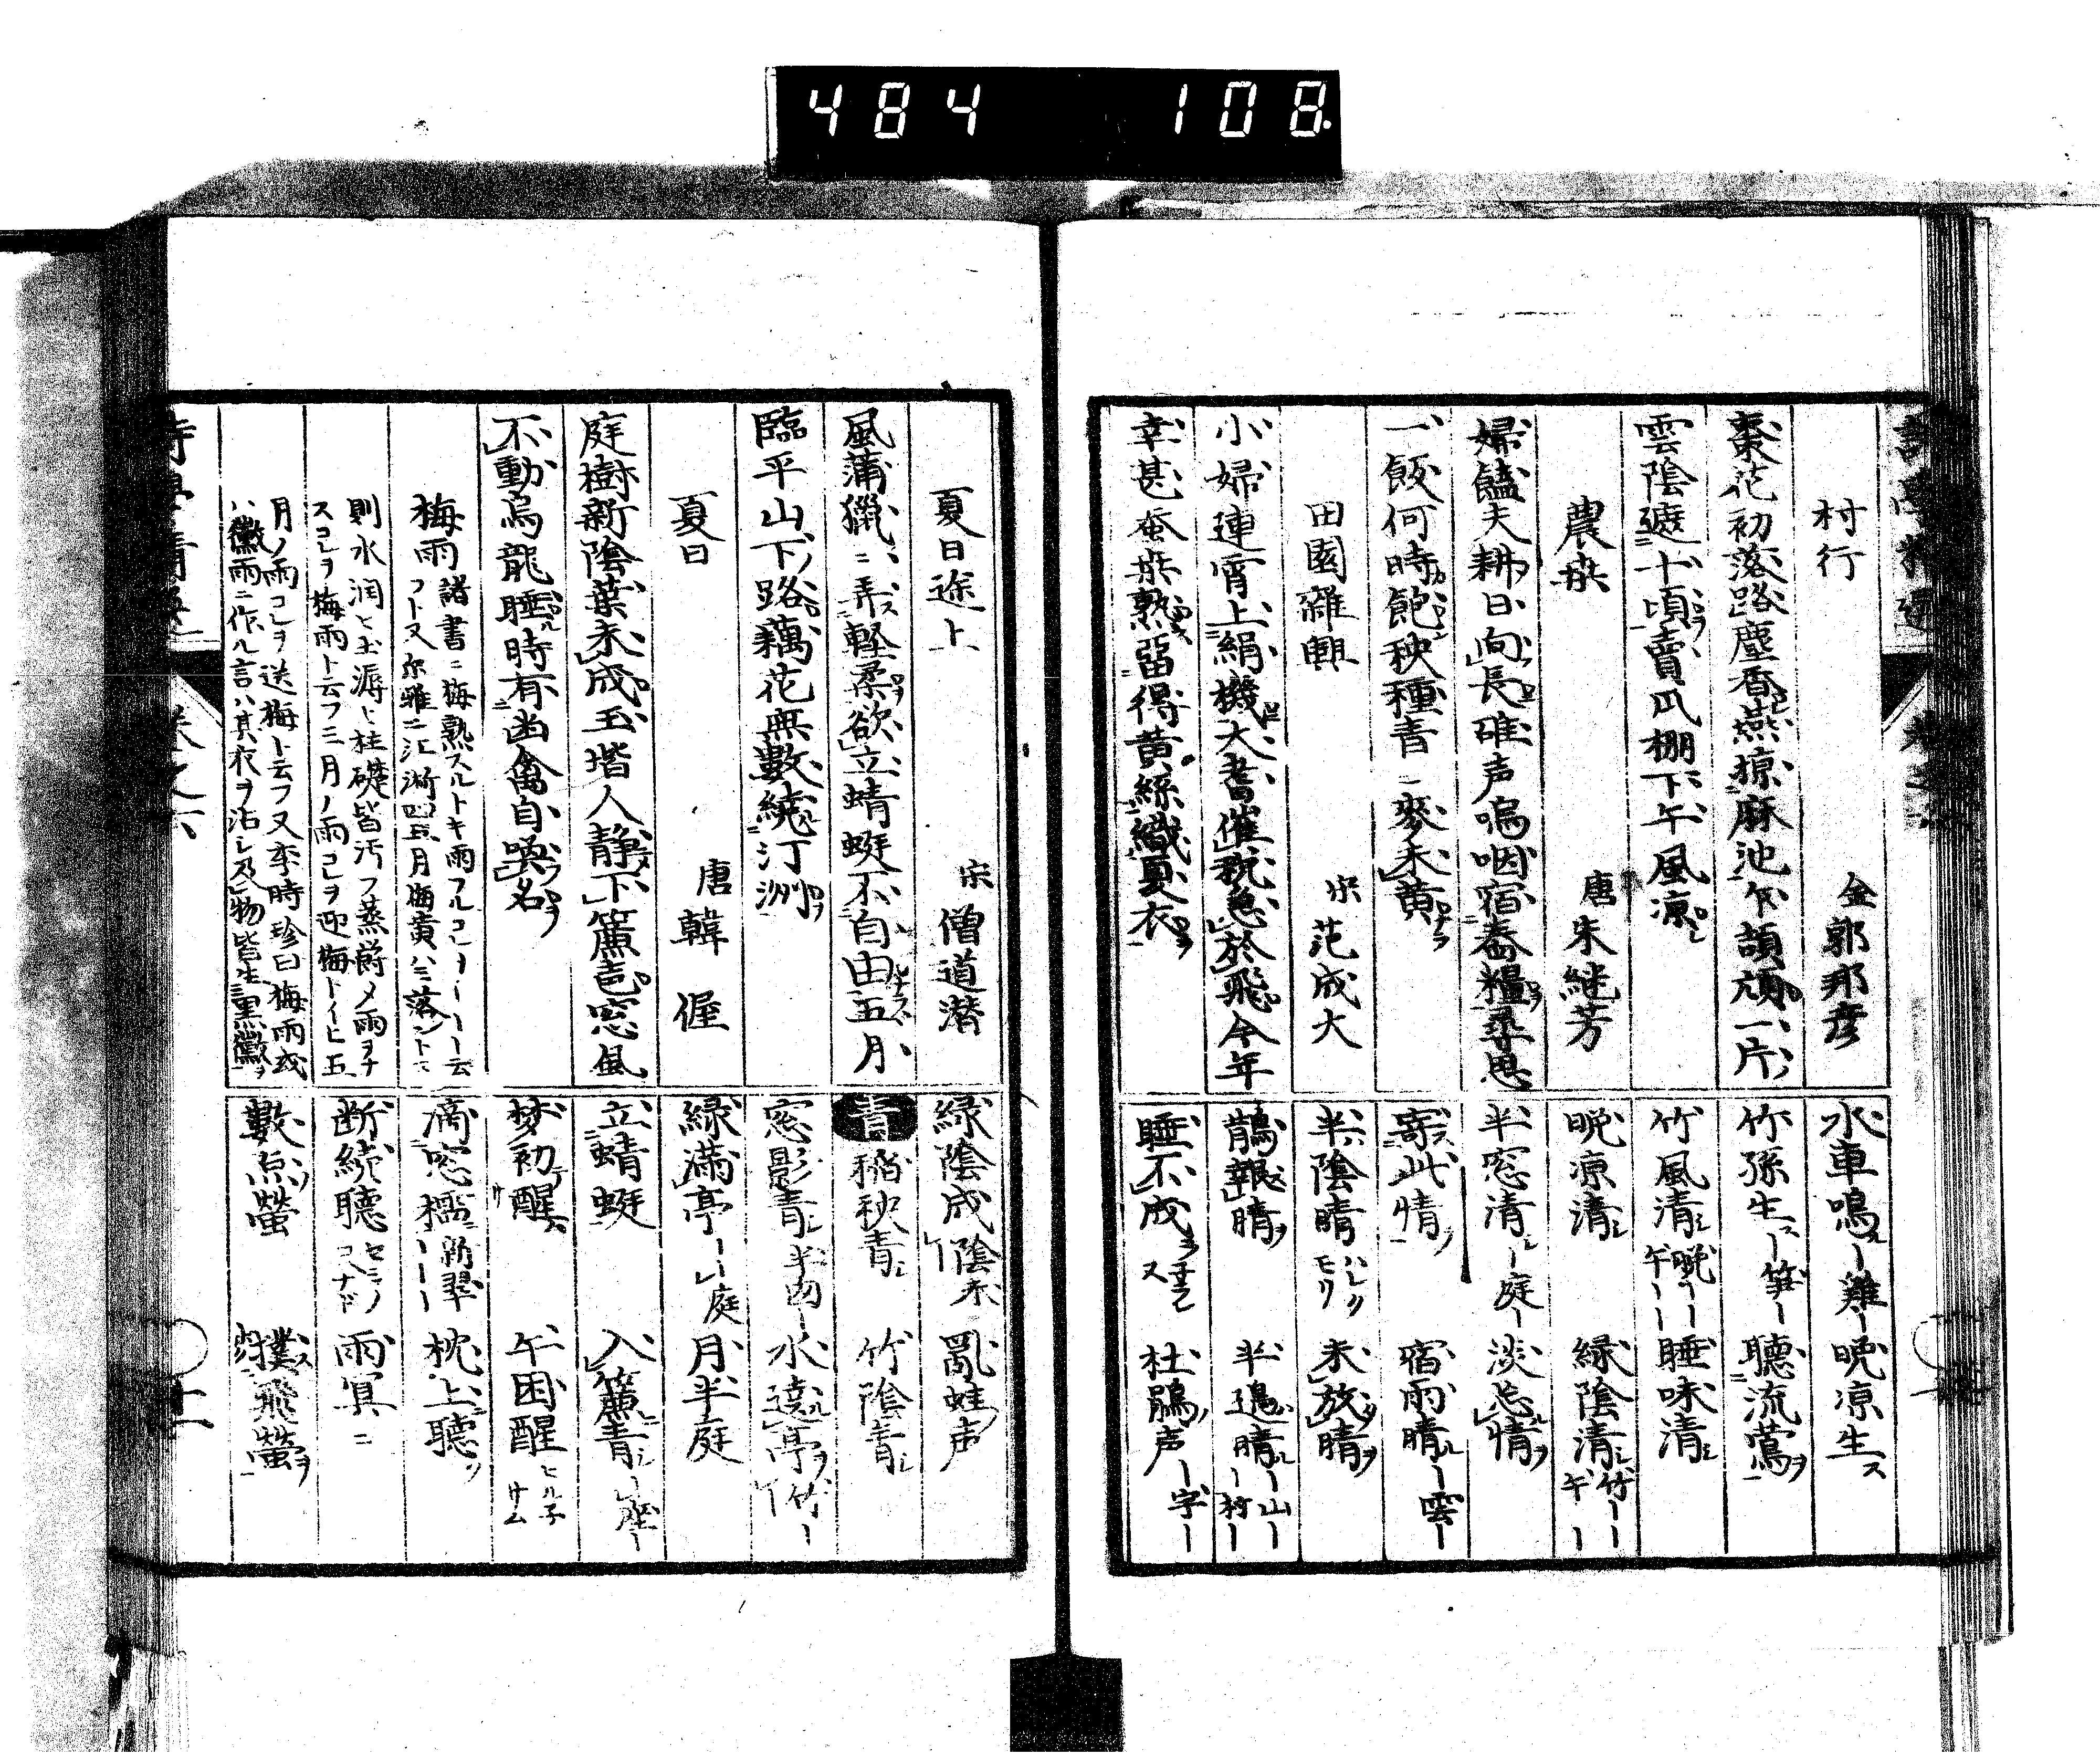 484 108
村行 金 郭邦彦
棗花初落路塵香燕掠麻池乍頡頏一片
雲陰遮十頃賣瓜棚下午風凉
農桑 唐 朱継芳
婦饁夫耕日向長碓声嗚咽宿舂糧尋思
一飯何時飽秧種青〻麥未黄
田園雜興 宋 范成大
小婦連宵上絹機大耆催税急於飛今年
幸甚蚕桑熟留得黄絲織夏衣
水車鳴ス 晩凉生ス
竹孫生ス 聽流鶯ヲ
竹風清シ 睡味清シ
晩凉清シ 緑陰清シ
半窓清シ 淡忘情ヲ
寄此情 宿雨晴
半陰晴 ハレクモリ 未放晴ヲ
鵲報晴 半邊晴
睡不成 杜鵑声
夏日途上 宋 僧道潜
風蒲獵〻弄軽柔欲立蜻蜓不自由五月
臨平山下路藕花無數繞汀洲
夏日 唐 韓偓
庭樹新陰葉未成玉堦人静下簾
不動烏龍睡時有幽禽自喚名
梅雨 諸書ニ梅熟スルトキ雨フル
フト又尓雅ニ江淅四五月梅黄
則水潤ヒ土溽ヒ柱礎皆汚フ蒸
スコレヲ梅雨ト云フ三月ノ雨コレヲ迎梅トイヒ五
月ノ雨コレヲ送梅ト云フ又李時珍曰梅雨或
ハ黴雨ニ作ル言ハ其衣ヲ沾シ及物皆生黒黴ヲ
緑陰成 亂蛙声
青 稲秧青シ 竹陰青シ
窓影青シ 水遶亭ヲ
緑満亭 月半庭
立蜻蜓 入簾青シ
梦初醒 午困醒
滴窓櫺 枕上聽
断続聽 雨冥〻
數点螢 撲飛螢ヲ